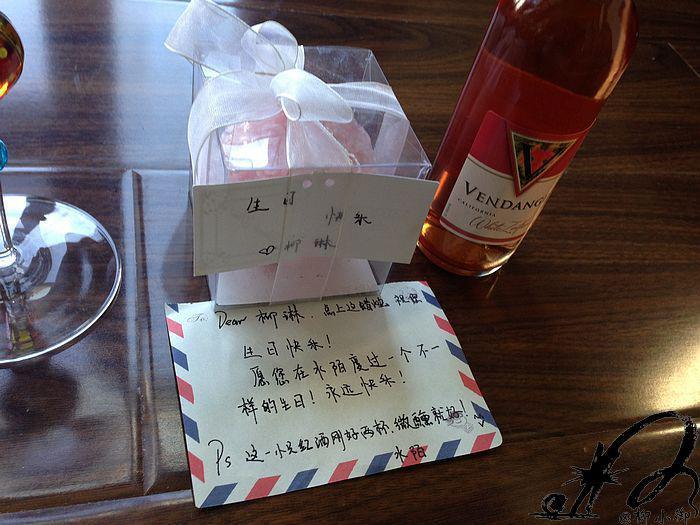 生日
快乐
♡柳琳
VENDANGE
CALIFORNIA
To:
Dear 柳琳、点上这蜡烛 祝您
生日快乐!
愿您在水陌度过一个不一
样的生日! 永远快乐!
Ps 这一小只红酒刚好两杯,微醺就好!
水陌
@柳小御